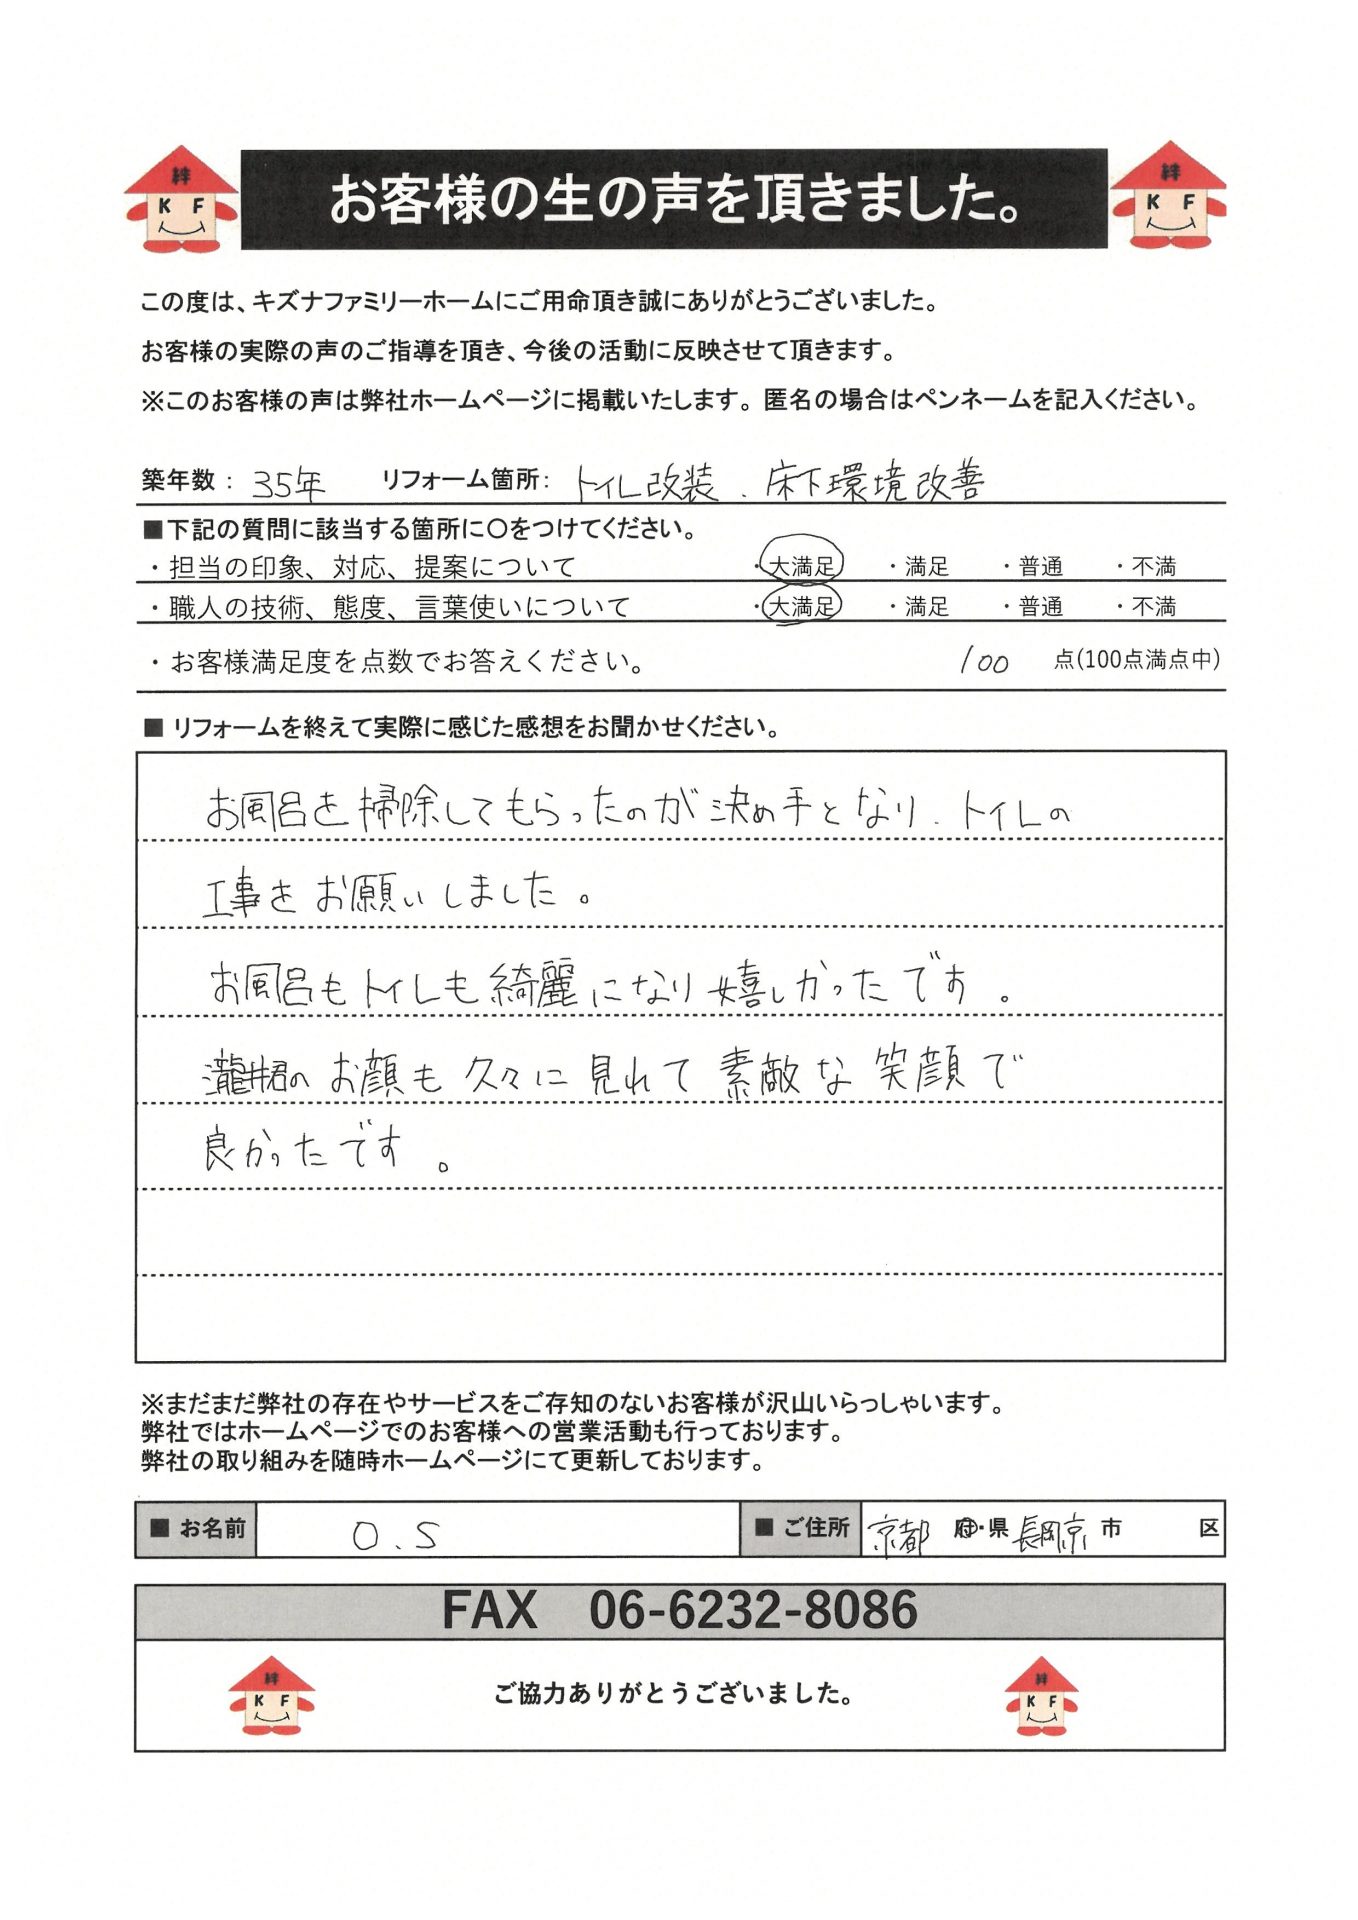 絆
K F
お客様の生の声を頂きました。
絆
K F
この度は、キズナファミリーホームにご用命頂き誠にありがとうございました。
お客様の実際の声のご指導を頂き、今後の活動に反映させて頂きます。
※このお客様の声は弊社ホームページに掲載いたします。匿名の場合はペンネームを記入ください。
築年数： 35年 リフォーム箇所： トイレ改装、床下環境改善
■下記の質問に該当する箇所に〇をつけてください。
・担当の印象、対応、提案について ・大満足 ・満足 ・普通 ・不満
・職人の技術、態度、言葉使いについて ・大満足 ・満足 ・普通 ・不満
・お客様満足度を点数でお答えください。 100 点(100点満点中)
■ リフォームを終えて実際に感じた感想をお聞かせください。
お風呂を掃除してもらったのが決め手となり、トイレの
工事をお願いしました。
お風呂もトイレも綺麗になり嬉しかったです。
瀧井君のお顔も久々に見れて素敵な笑顔で
良かったです。
※まだまだ弊社の存在やサービスをご存知のないお客様が沢山いらっしゃいます。
弊社ではホームページでのお客様への営業活動も行っております。
弊社の取り組みを随時ホームページにて更新しております。
■ お名前 O.S ■ ご住所 京都 府・県 長岡京 市 区
FAX 06-6232-8086
絆
K F
ご協力ありがとうございました。
絆
K F